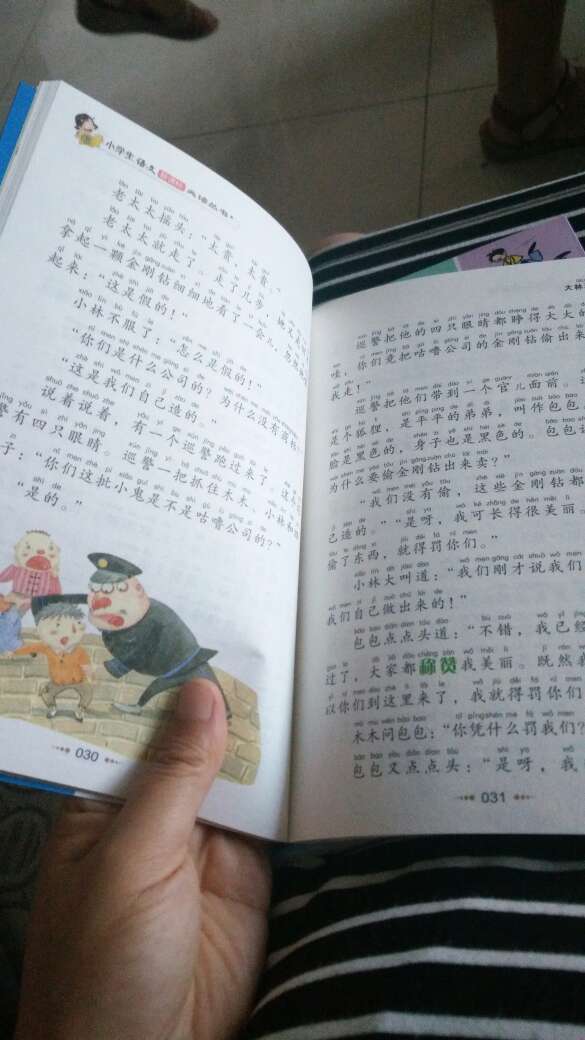 小学生语文新课标必读丛书
老太太摇头:“太贵,太贵。”
老太太就走了。走了几步,她又
拿起一颗金刚钻细细地看了一会儿,忽
起来:“这是假的!”
小林不服了:“怎么是假的!”
“你们是什么公司的?为什么没有商标
“这是我们自己造的。”
说着说着,有一个巡警跑过来了,这
警有四只眼睛。巡警一把抓住木木、小林和
子:“你们这批小鬼是不是咕噜公司的?”
“是的。”
030
大林
巡警把他的四只眼睛都睁得大大的
哇,你们竟把咕噜公司的金刚钻偷出来
我走!”
巡警把他们带到一个官儿面前。
是个狐狸,是平平的弟弟,叫作包包
脸是黑色的,身子也是黑色的。包包
为什么要偷金刚钻出来卖?”
“我们没有偷,这些金刚钻都
己造的。”“是呀,我可长得很美丽。
偷了东西,就得罚你们。”
小林大叫道:“我们刚才说我们
我们自己做出来的!”
包包点点头道:“不错,我已经
过了,大家都称赞我美丽。既然我
以你们到这里来了,我就得罚你们
木木问包包:“你凭什么罚我们?
包包又点点头:“是呀,我
031